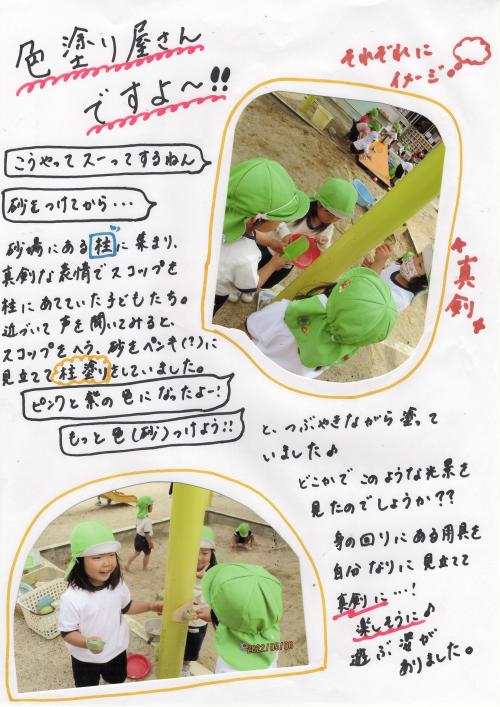 色塗り屋さん
ですよ〜!!
それぞれに
イメージ
こうやってスーってするねん
砂をつけてから・・・
砂場にある柱に集まり、
真剣な表情でスコップを
柱にあてていた子どもたち。
近づいて声を聞いてみると、
スコップをヘラ、砂をペンキ(?)に
見立てて柱塗りをしていました。
ピンクと紫の色になったよー!
もっと色(砂)つけよう!!
真剣
と、つぶやきながら塗って
いました♪
どこかでこのような光景を
見たのでしょうか??
身の回りにある用具を
自分なりに見立てて
真剣に…!
楽しそうに♪
遊ぶ姿が
ありました。